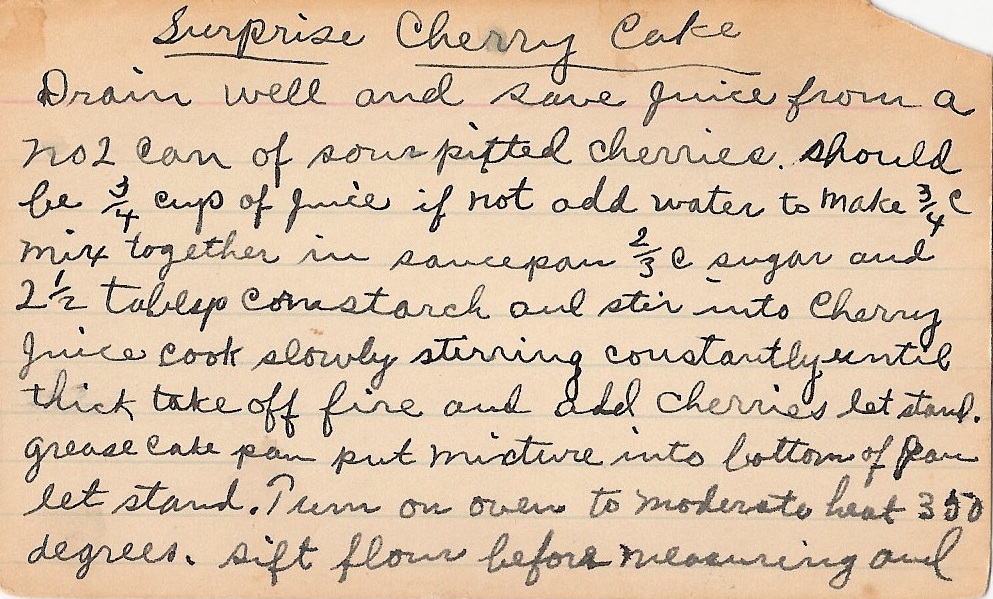 Surprise Cherry Cake
Drain well and save juice from a
no2 can of sour pitted cherries. should
be 3/4 cup of juice if not add water to make 3/4 c
mix together in saucepan 2/3 c sugar and
2 1/2 tablesp cornstarch and stir into Cherry
Juice cook slowly stirring constantly until
thick take off fire and add cherries let stand.
grease cake pan put mixture into bottom of pan
let stand. Turn on oven to moderate heat 350
degrees. sift flour before measuring and